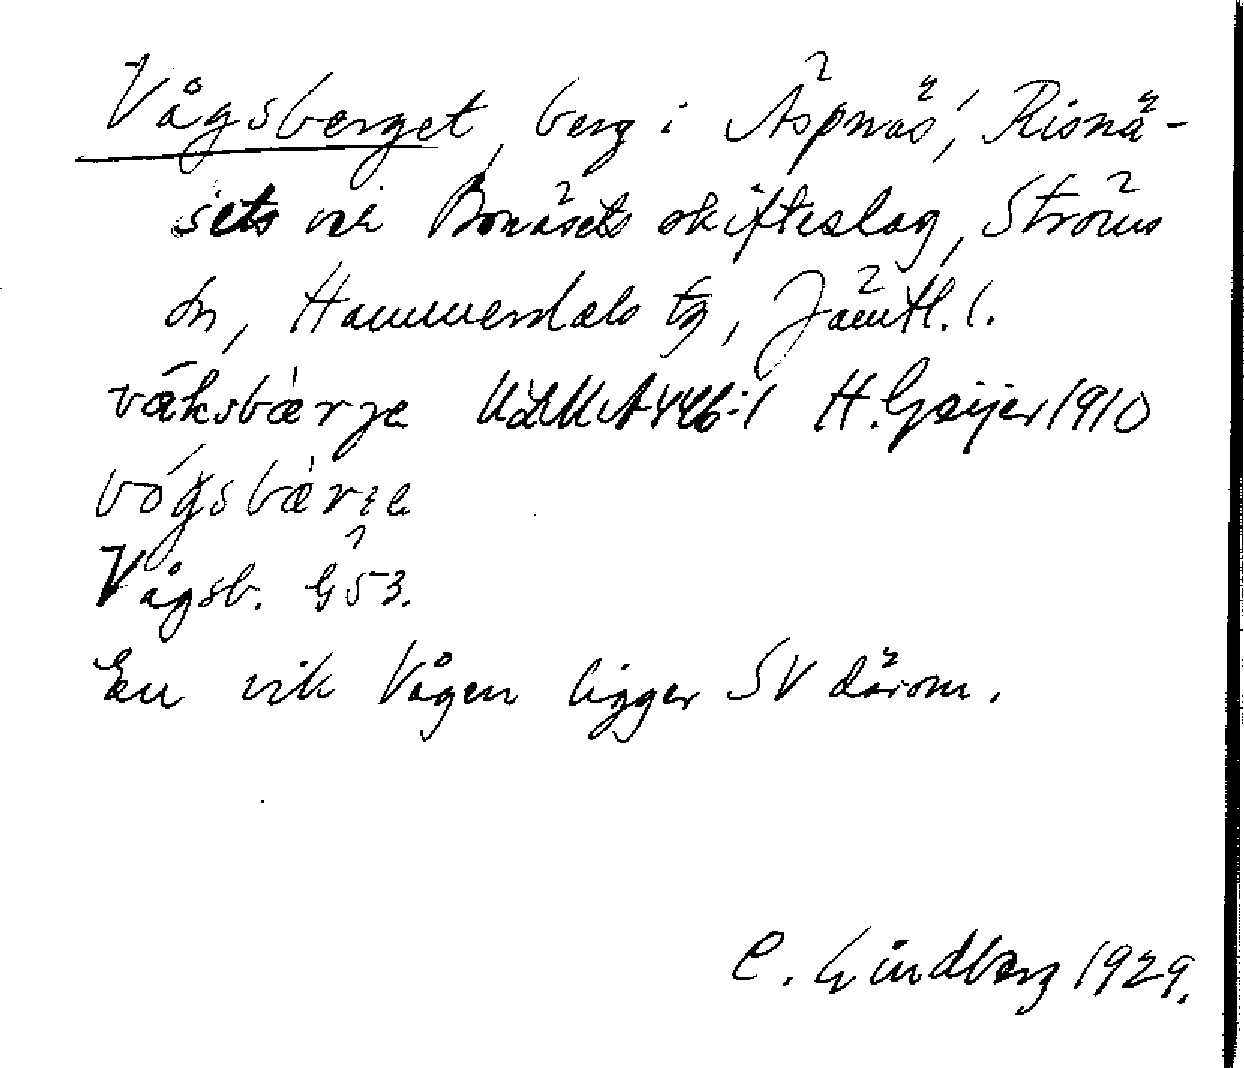 Vågsberget, berg i Äspnäs, Risnä-
sets och Bonäsets skifteslag, Ströms
sn, Hammerdals tg, Jämtl. l.
våksbærje ULMA 446:1 H. Geijer 1910
vógsbærje
Vågsb. G 53.
En vik Vågen ligger SV därom.
C. Lindberg 1929.